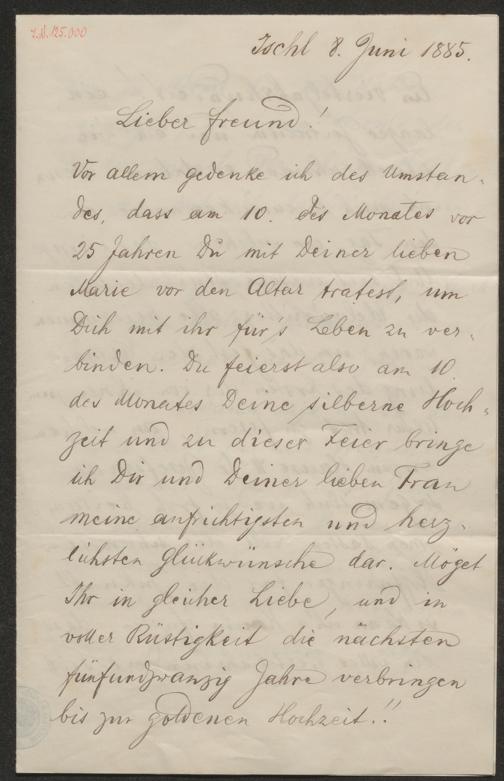 I.N. 125.000
Ischl 8. Juni 1885.
Lieber Freund!
Vor allem gedenke ich des Umstan-
des, dass am 10. des Monates vor
25 Jahren Du mit Deiner lieben
Marie vor den Altar tratest, um
Dich mit ihr für's Leben zu ver-
binden. Du feierst also am 10.
des Monates Deine silberne Hoch-
zeit und zu dieser Feier bringe
ich Dir und Deiner lieben Frau
meine aufrichtigsten und herz-
lichsten Glückwünsche dar. Möget
Ihr in gleicher Liebe, und in
voller Rüstigkeit die nächsten
fünfundzwanzig Jahre verbringen
bis zur goldenen Hochzeit!!